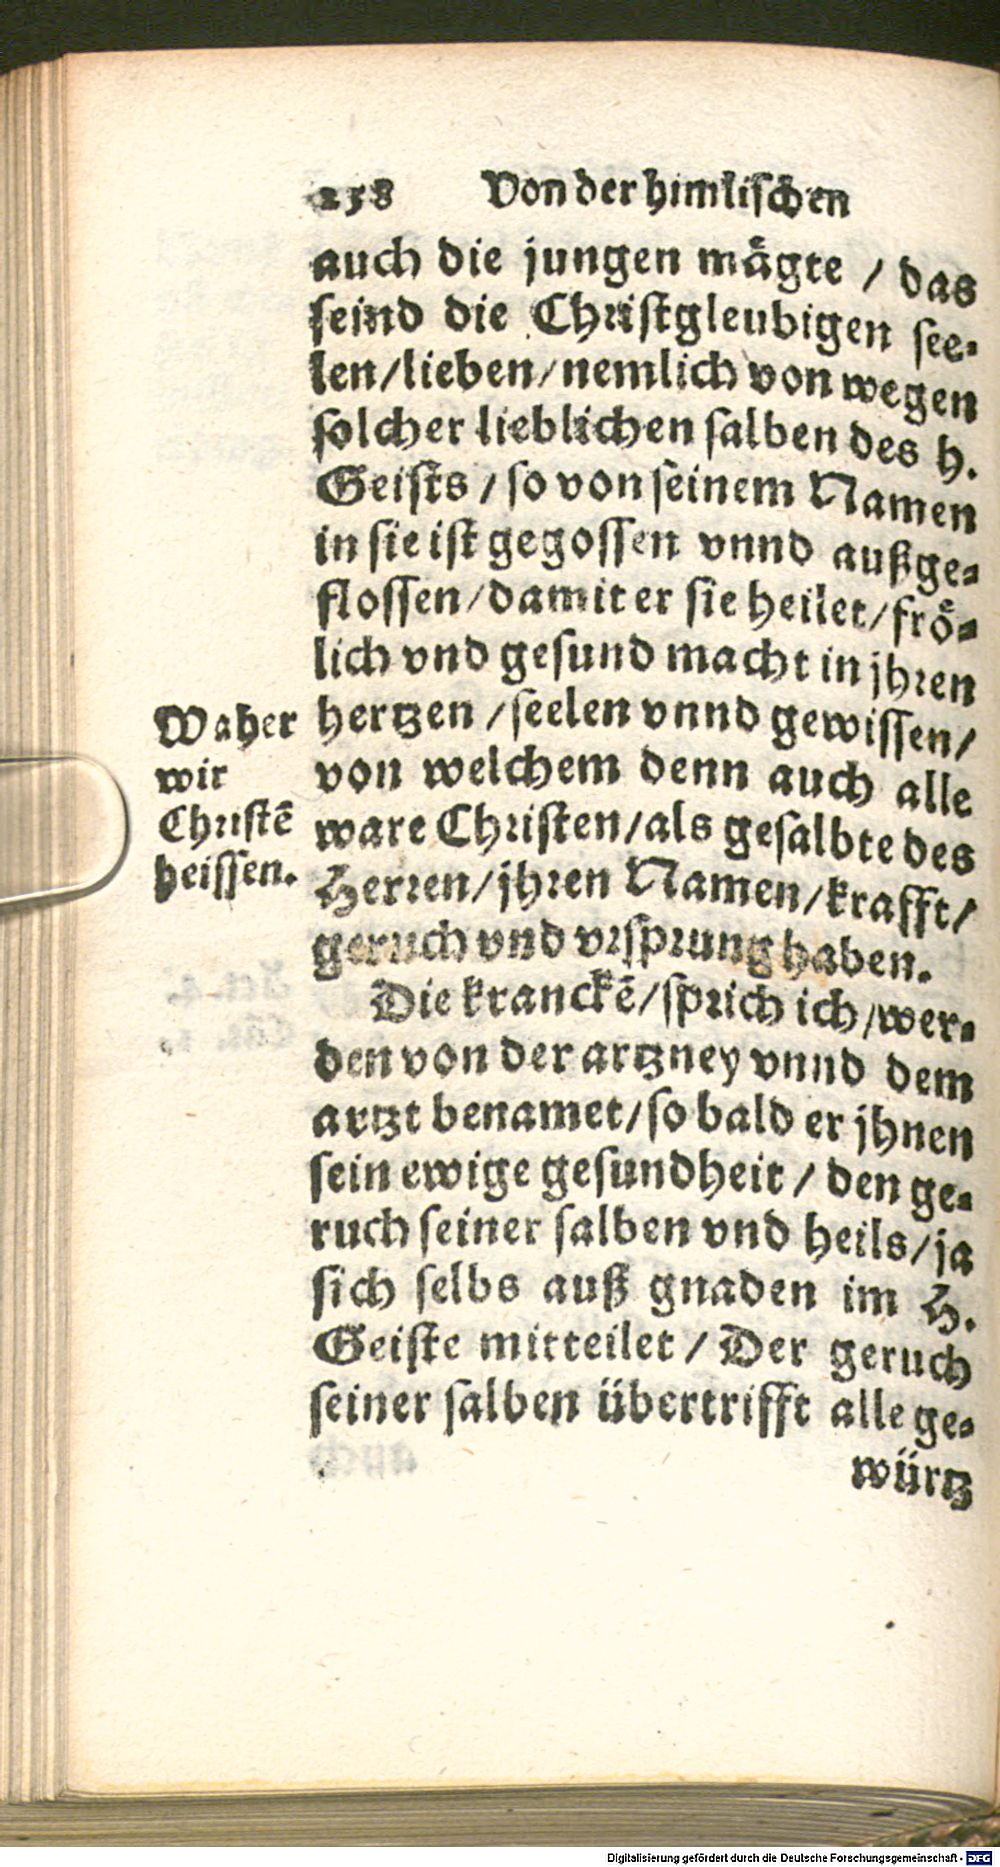 258 Von der himlischen
auch die jungen mågte / das
seind die Christgleubigen see-
len/lieben/nemlich von wegen
solcher lieblichen salben des H.
Geists / so von seinem Namen
in sie ist gegossen vnnd außge-
flossen/damit er sie heilet/frö-
lich vnd gesund macht in jhren
hertzen /seelen vnnd gewissen/
von welchem denn auch alle
ware Christen/als gesalbte des
Herren/jhren Namen/krafft/
geruch vnd vrsprung haben.
Waher
wir
Christē
heissen.
Die kranckē/sprich ich/wer-
den von der artzney vnnd dem
artzt benamet/so bald er jhnen
sein ewige gesundheit / den ge-
ruch seiner salben vnd heils/ja
sich selbs auß gnaden im H.
Geiste mitteilet / Der geruch
seiner salben übertrifft alle ge-
würtz
Digitalisierung gefördert durch die Deutsche Forschungsgemeinschaft - DFG